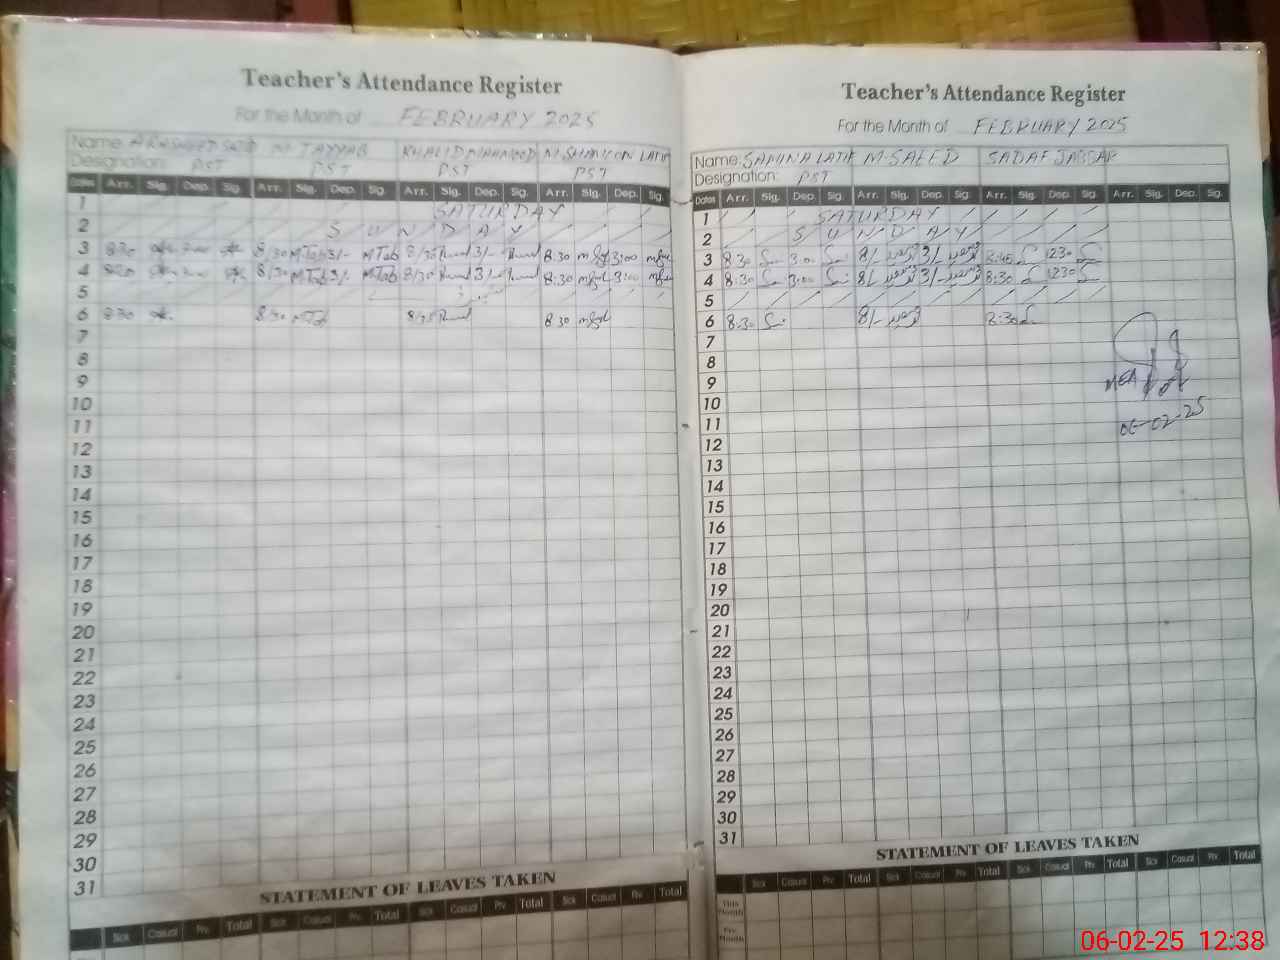 Teacher's Attendance Register
For the Month of FEBRUARY 2025
Name: A RASHEED SAJID M TAYYAB KHALID MAHMOOD M SHAMOON LATIF
Designation: PST PST PST PST
Dates Arr. Sig. Dep. Sig. Arr. Sig. Dep. Sig. Arr. Sig. Dep. Sig. Arr. Sig. Dep. Sig.
1 SATURDAY
2 SUNDAY
3 8:30 8/30 M.Tab 3/- M Tab 8/30 3/- 8:30 3:00
4 8:30 8/30 M.Tab 3/- M Tab 8/30 3/- 8:30 3:00
5
6 8:30 8/30 M.Tab 8/35 8:30
7
8
9
10
11
12
13
14
15
16
17
18
19
20
21
22
23
24
25
26
27
28
29
30
31
STATEMENT OF LEAVES TAKEN
Sick Casual Prv. Total Sick Casual Prv. Total Sick Casual Prv. Total
Teacher's Attendance Register
For the Month of FEBRUARY 2025
Name: SAMINA LATIF M-SAEED SADAF JABBAR
Designation: PST
Dates Arr. Sig. Dep. Sig. Arr. Sig. Dep. Sig. Arr. Sig. Dep. Sig. Arr. Sig. Dep. Sig.
1 SATURDAY
2 SUNDAY
3 8:30 3:00 8/- 3/- 8:45 1230
4 8:30 3:00 8/- 3/- 8:30 1230
5
6 8:30 8/- 8:30
7
8
9 MEA
10
11 06-02-25
12
13
14
15
16
17
18
19
20
21
22
23
24
25
26
27
28
29
30
31
STATEMENT OF LEAVES TAKEN
Sick Casual Prv. Total Sick Casual Prv. Total Sick Casual Prv. Total Sick Casual Prv. Total
This Month
Prv. Month
06-02-25 12:38